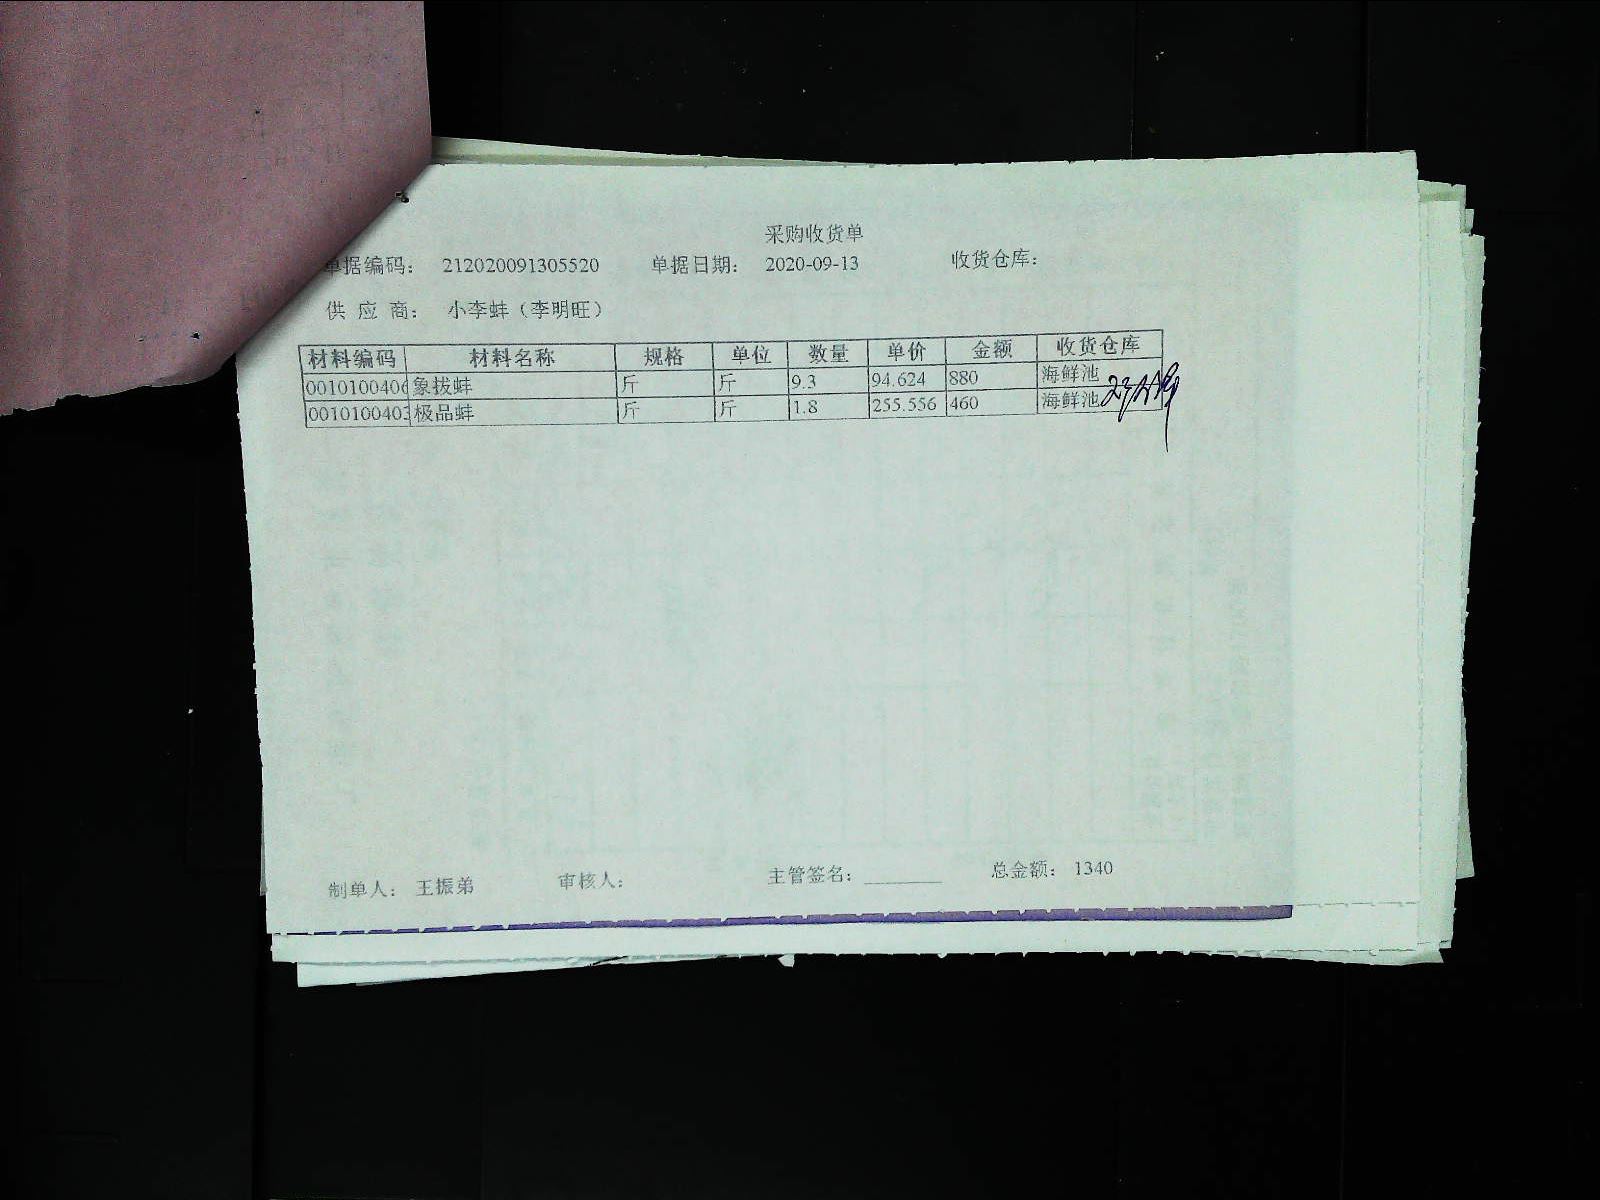 采购收货单
单据编码： 212020091305520 单据日期： 2020-09-13 收货仓库：
供 应 商： 小李蚌（李明旺）
材料编码 材料名称 规格 单位 数量 单价 金额 收货仓库
0010100406 象拔蚌 斤 斤 9.3 94.624 880 海鲜池
0010100403 极品蚌 斤 斤 1.8 255.556 460 海鲜池
制单人： 王振弟 审核人： 主管签名：________ 总金额： 1340